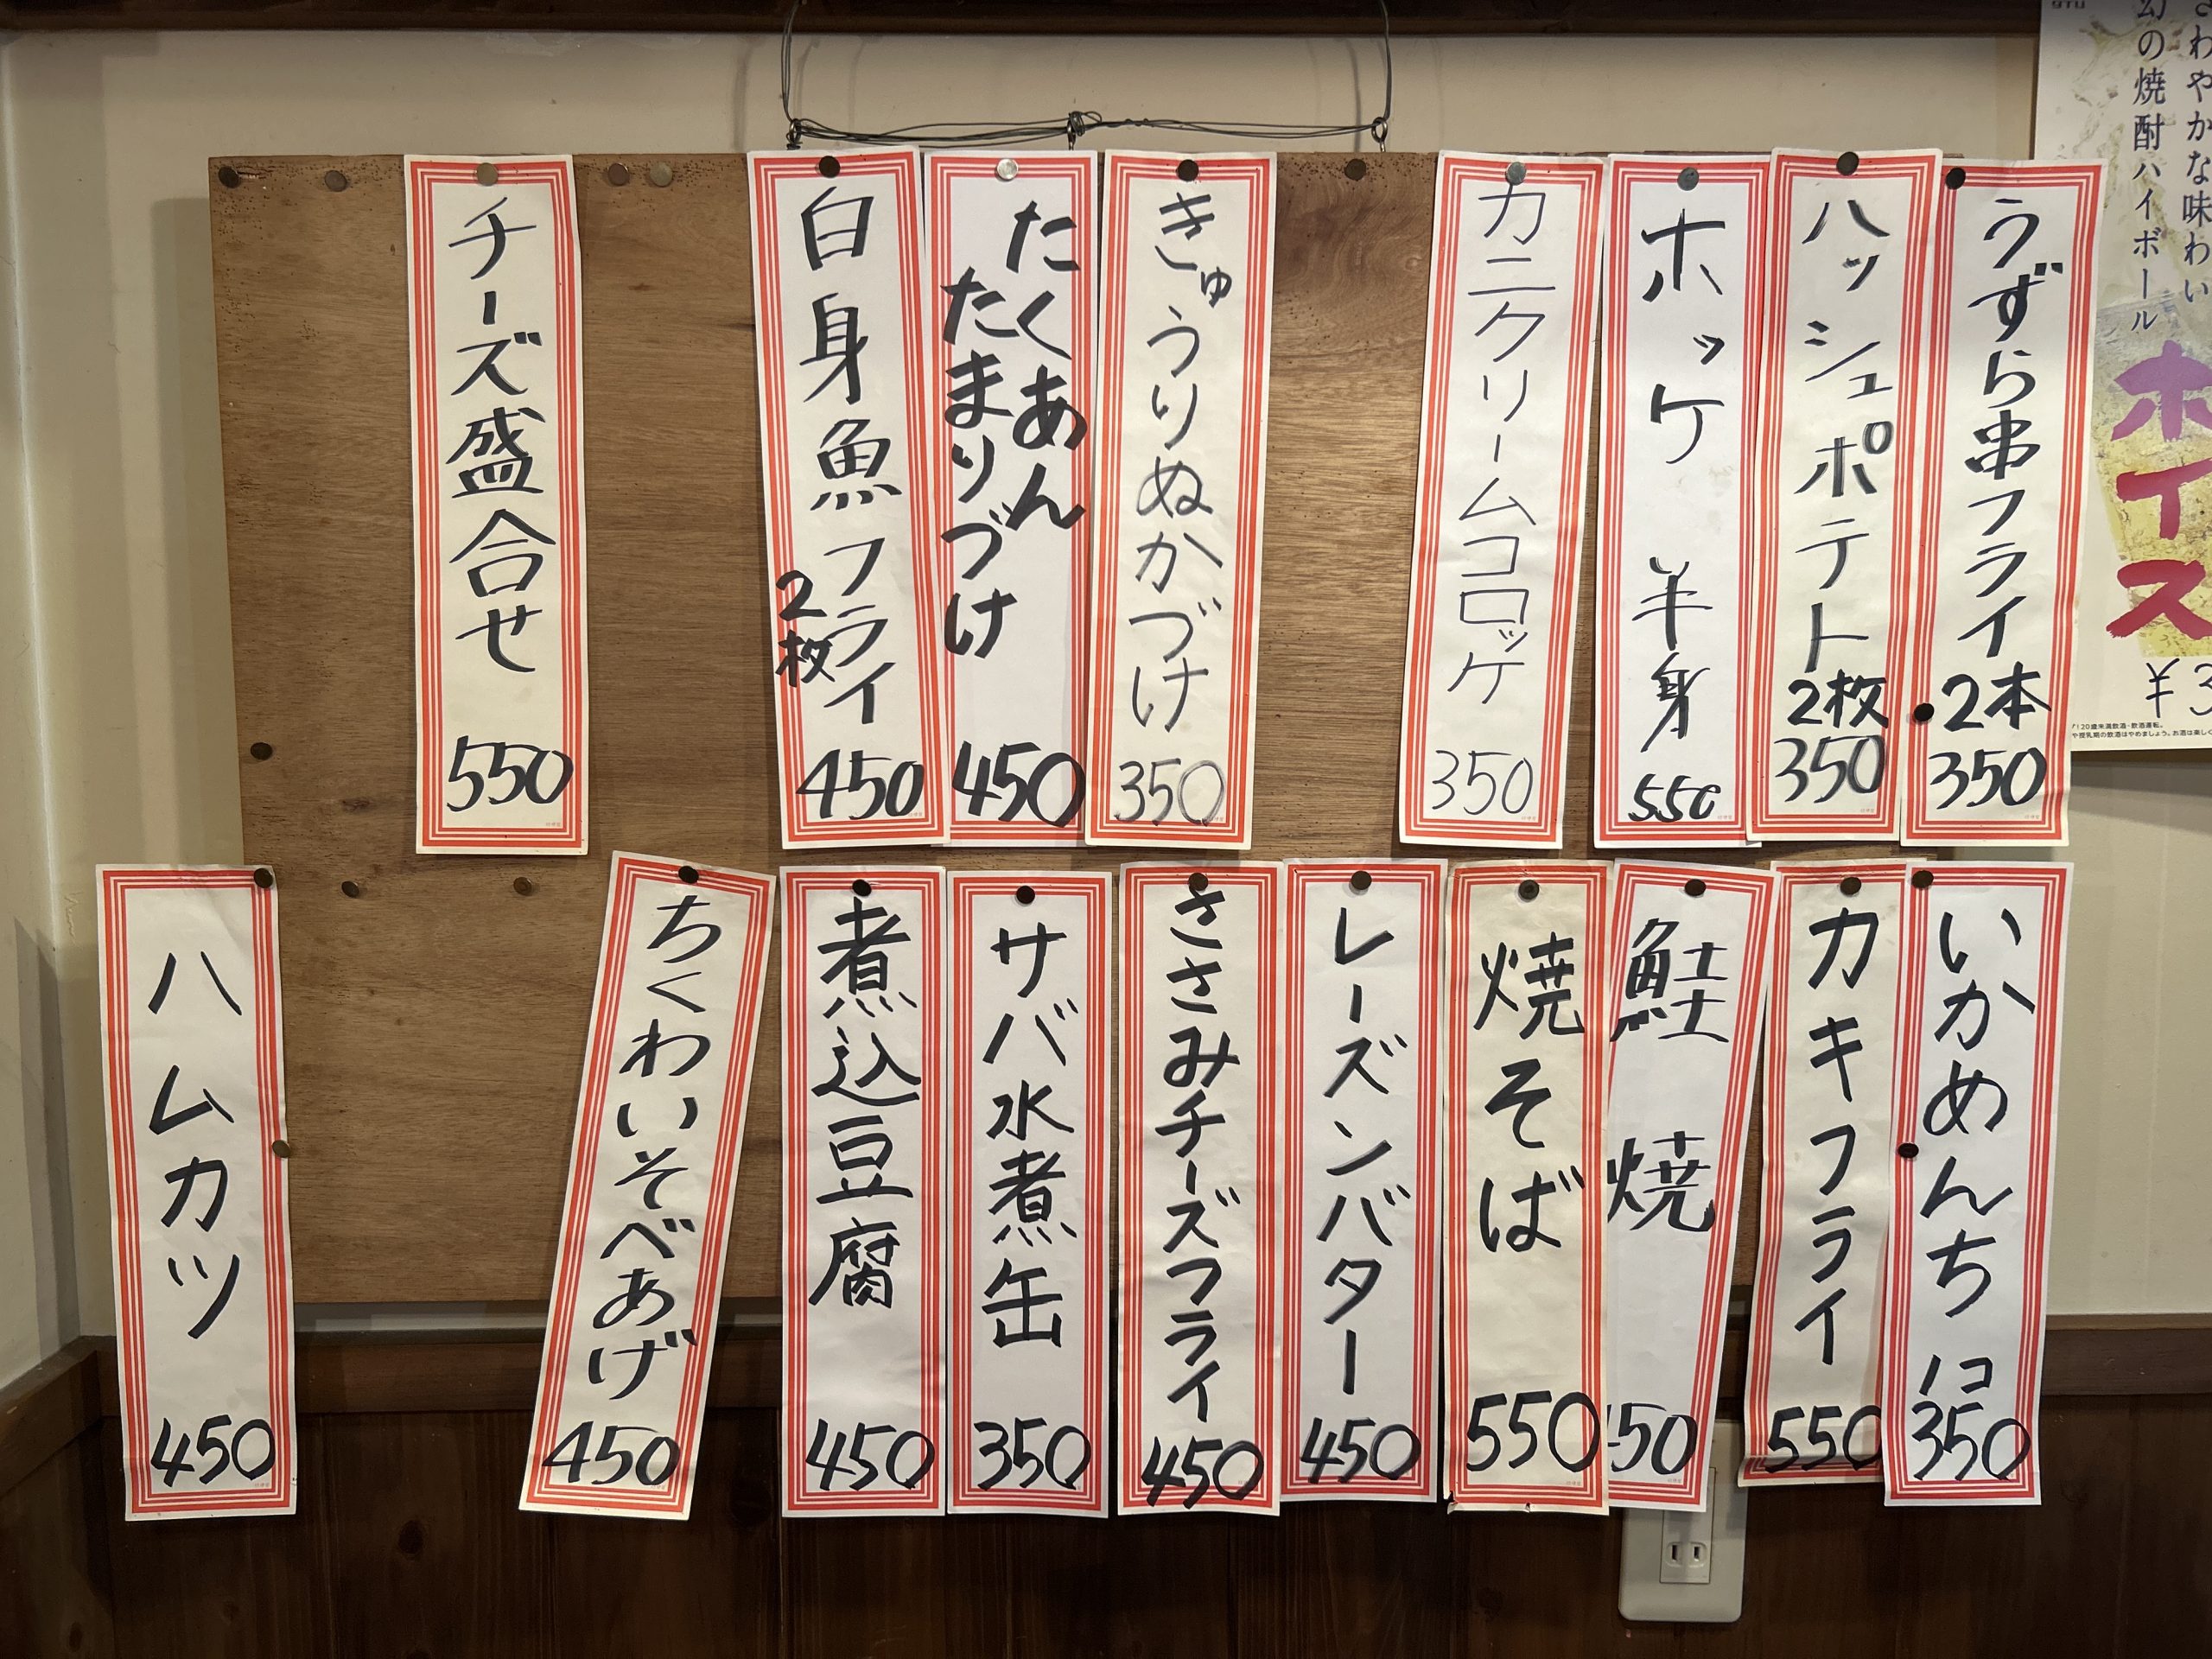 さわやかな味わい
幻の焼酎ハイボール
ホイス
¥3
うずら串フライ
2本
350
ハッシュポテト
2枚
350
ホッケ 半身
550
カニクリームコロッケ
350
きゅうりぬかづけ
350
たくあん
たまりづけ
450
白身魚フライ
2枚
450
チーズ盛合せ
550
いかめんち
1コ
350
カキフライ
550
鮭焼
50
焼そば
550
レーズンバター
450
ささみチーズフライ
450
サバ水煮缶
350
煮込豆腐
450
ちくわいそべあげ
450
ハムカツ
450